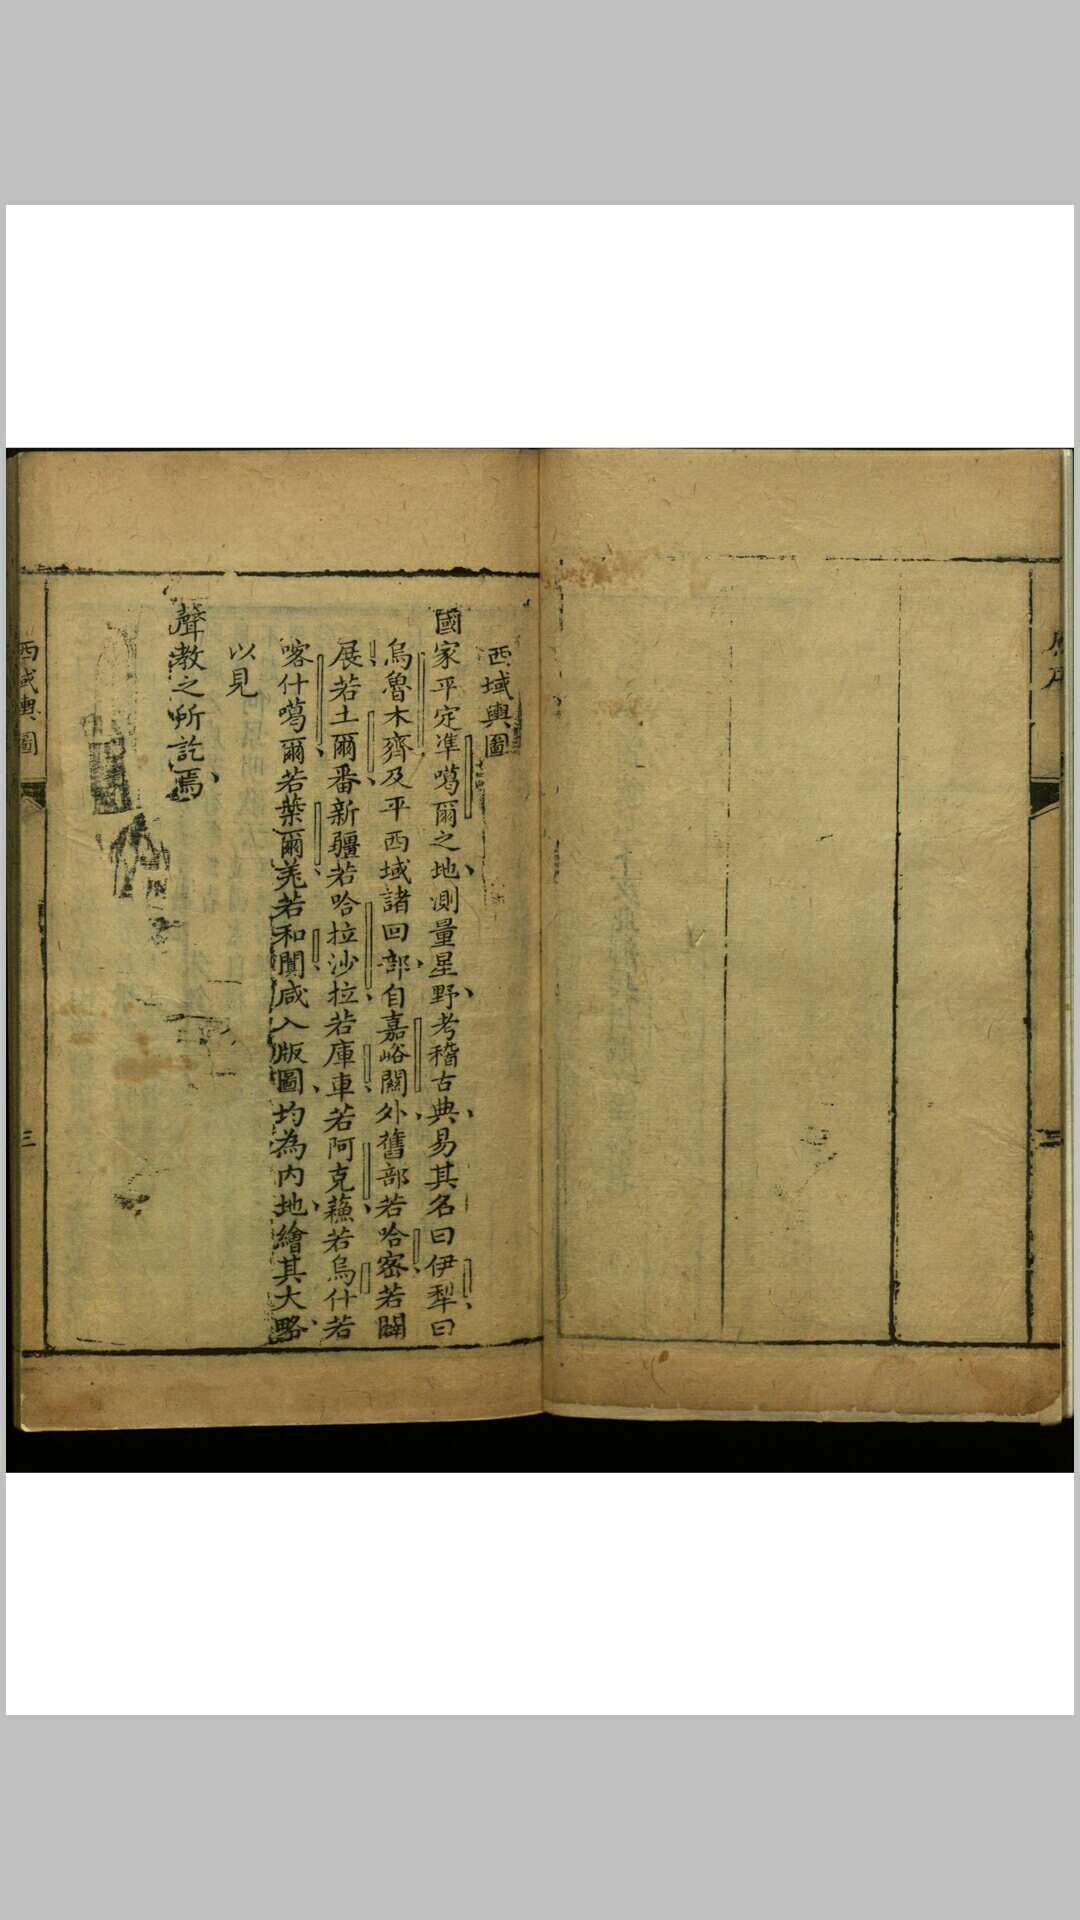 西域輿圖
國家平定準噶爾之地測量星野考稽古典易其名曰伊犁曰
烏魯木齊及平西域諸回部自嘉峪關外舊部若哈密若闢
展若土爾番新疆若哈拉沙拉若庫車若阿克蘓若烏什若
喀什噶爾若葉爾羌若和闐咸入版圖均為內地繪其大略
以見
聲教之所訖焉
西域輿圖
三